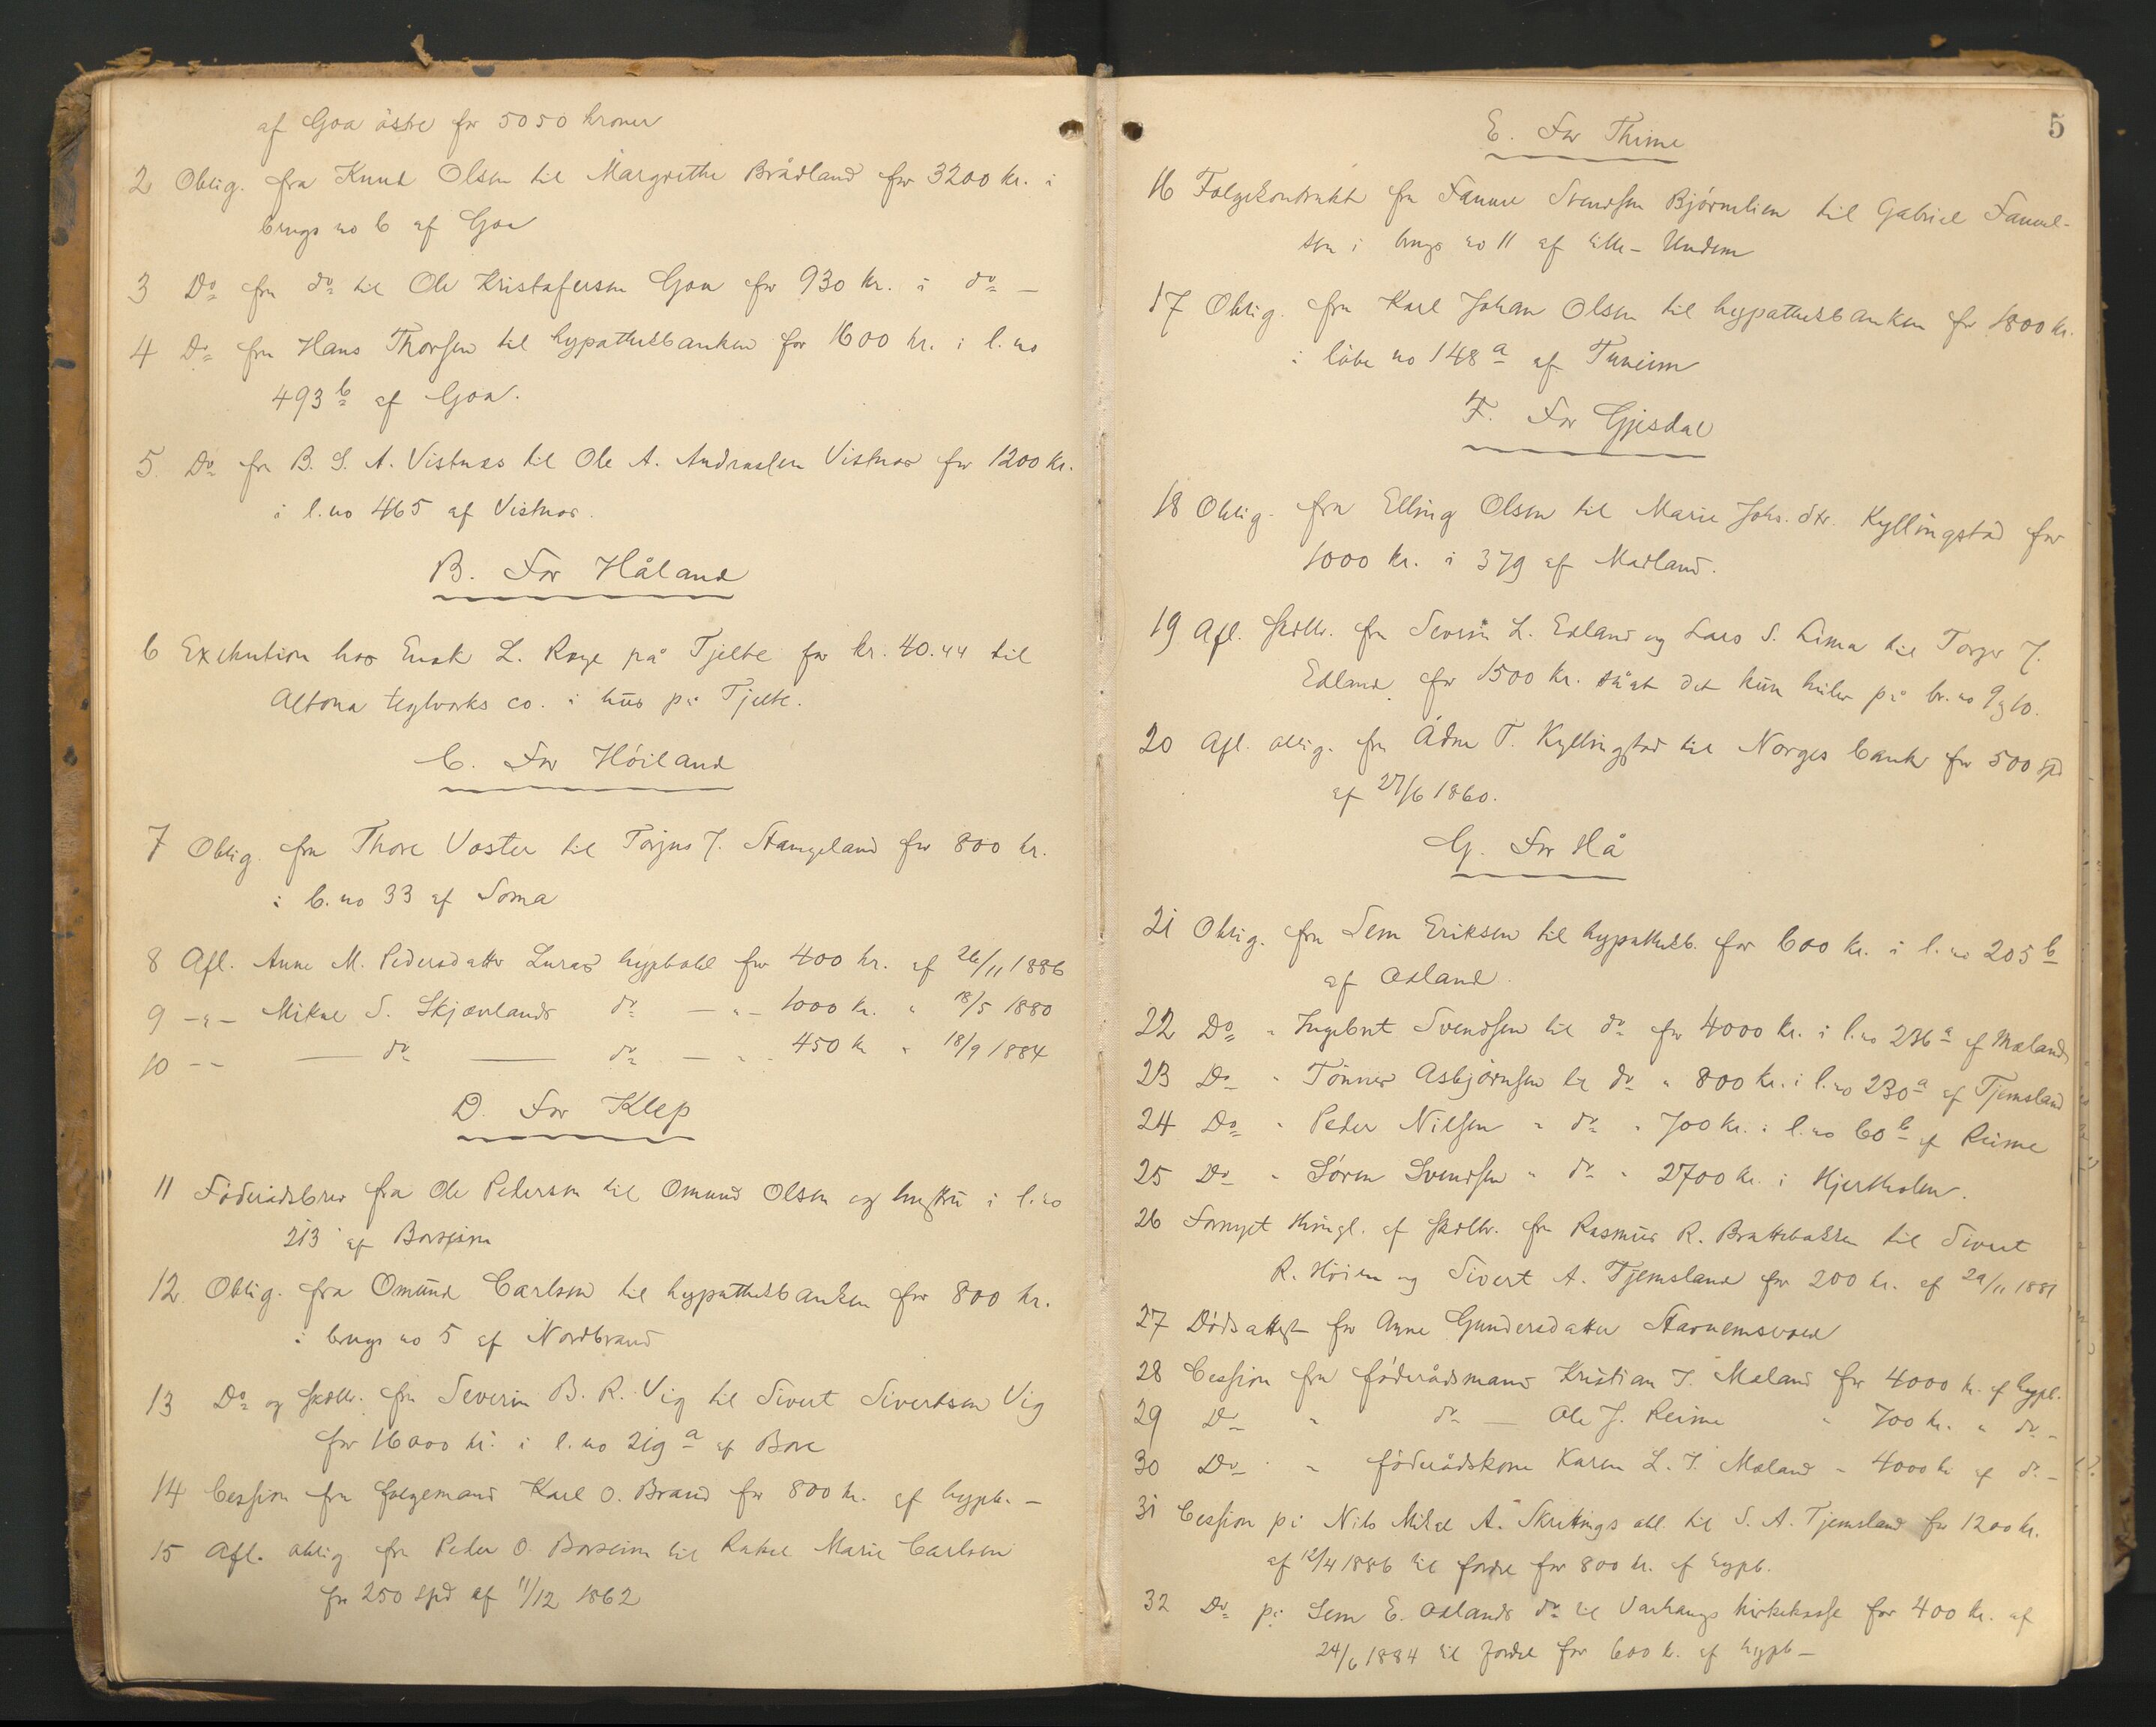 af Goa östre for 5050 kroner
2 Oblig. fra Knud Olsen til Margrethe Brådland for 3200 kr. i
brugs no 6 af Goa
3 Do fra do til Ole Kristofersen Goa for 930 kr. i do —
4 Do fra Hans Thorsen til hypothekbanken for 1600 kr. i l. no
493 b af Goa.
5. Do fra B. S. A. Vistnæs til Ole A. Andreasen Vistnæs for 1200 kr.
i l. no 465 af Vistnæs.
B. For Håland
6 Exekution hos Enok L. Rege på Tjelte for kr. 40.44 til
Altona teglverks co. i hus på Tjelte.
C. For Höiland
7 Oblig. fra Thore Vaster til Torjus J. Stangeland for 800 kr.
i b. no 33 af Soma
8 Afl. Anne M. Pedersdatter Luras hypbobl for 400 kr. af 26/11 1886
9 -"- Mikal S. Skjævlands do — " - 1000 kr. " 18/5 1880
10 -- — do — do — " - 450 kr " 18/9 1884
D. For Klep
11 Föderådsbrev fra Ole Pedersen til Omund Olsen og hustru i l. no
213 af Borsheim
12. Oblig. fra Omund Carlsen til hypothekbanken for 800 kr.
i brugs no 5 af Nordbraud
13 Do og skdbr. fra Severin B. R. Vig til Sivert Sivertsen Vig
for 16000 kr. i l. no 219 a af Bore
14 Cession fra folgemand Karl O. Braud for 800 kr. af hypb. —
15 Afl. oblig fra Peder O. Borseim til Rakel Marie Carlsen
for 250 spd af 11/12 1862
5
E. For Thime
16 Folgekontrakt fra Samuel Svendsen Björnelien til Gabriel Samuel-
sen i brugs no 11 af Lille- Undem
17 Oblig. fra Karl Johan Olsen til hypothekbanken for 1800 kr.
i löbe no 148 a af Tuneim
F. For Gjesdal
18 Oblig. fra Elling Olsen til Marie Johs. dtr. Kyllingstad for
1000 kr. i 379 af Madland.
19 Afl. skdbr. fra Severin L. Edland og Lars S. Lima til Torger J.
Edland for 1500 kr. så at det kun hviler på br. no 9 g 10.
20 Afl. oblig. fra Ådne T. Kyllingstad til Norges bank for 500 spd
af 27/6 1860.
G. For Hå
21 Oblig. fra Sem Eriksen til hypothekb. for 600 kr. i l. no 205 b
af Odland.
22 Do " Ingebret Svendsen til do for 4000 kr. i l. no 236 a af Mæland
23 Do " Tönnes Asbjörnsen til do " 800 kr. i l. no 230 a af Tjemsland
24 Do " Peder Nilsen " do " 700 kr. i l. no 60 b af Reime
25 Do " Sören Svendsen " do " 2700 kr. i Hjerkholen.
26 Fornyet thingl. af skdbr. fra Rasmus R. Brattebakken til Sivert
R. Höien og Sivert A. Tjemsland for 200 kr. af 29/11 1881
27 Dödsattest for Anne Gundersdatter Stavnemsvoed
28 Cession fra föderådsmand Kristian T. Mæland for 4000 kr. af hypb.
29 Do " do — Ole J. Reime " 700 kr. " do -
30 Do " föderådskone Karen L. T. Mæland - 4000 kr af do -
31 Cession på Nils Mikal A. Skrettings obl. til S. A. Tjemsland for 1200 kr.
af 12/4 1886 til fordel for 800 kr. af hypb.
32 Do på Sem E. Odlands do til Varhaugs kirkekasse for 400 kr. af
24/6 1884 til fordel for 600 kr. af hypb —